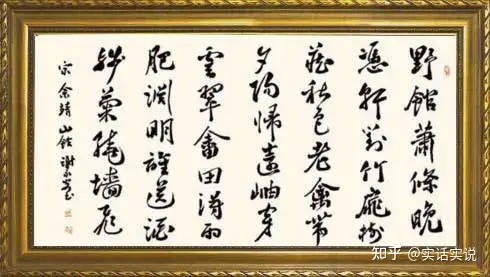 野館蕭條晚
憑軒對竹扉樹
藏秋色老禽帶
夕陽歸遠岫穿
雲翠畬田得雨
肥淵明誰送酒
殘菊繞墻飛
宋余靖山館謝
知乎 @实话实说